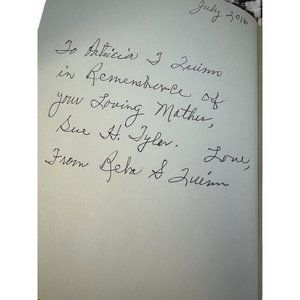 July 2016
To Patricia T Quinn
in Remembrence of
your Loving Mother,
Sue H. Tyler. Love,
From Reba S Quinn